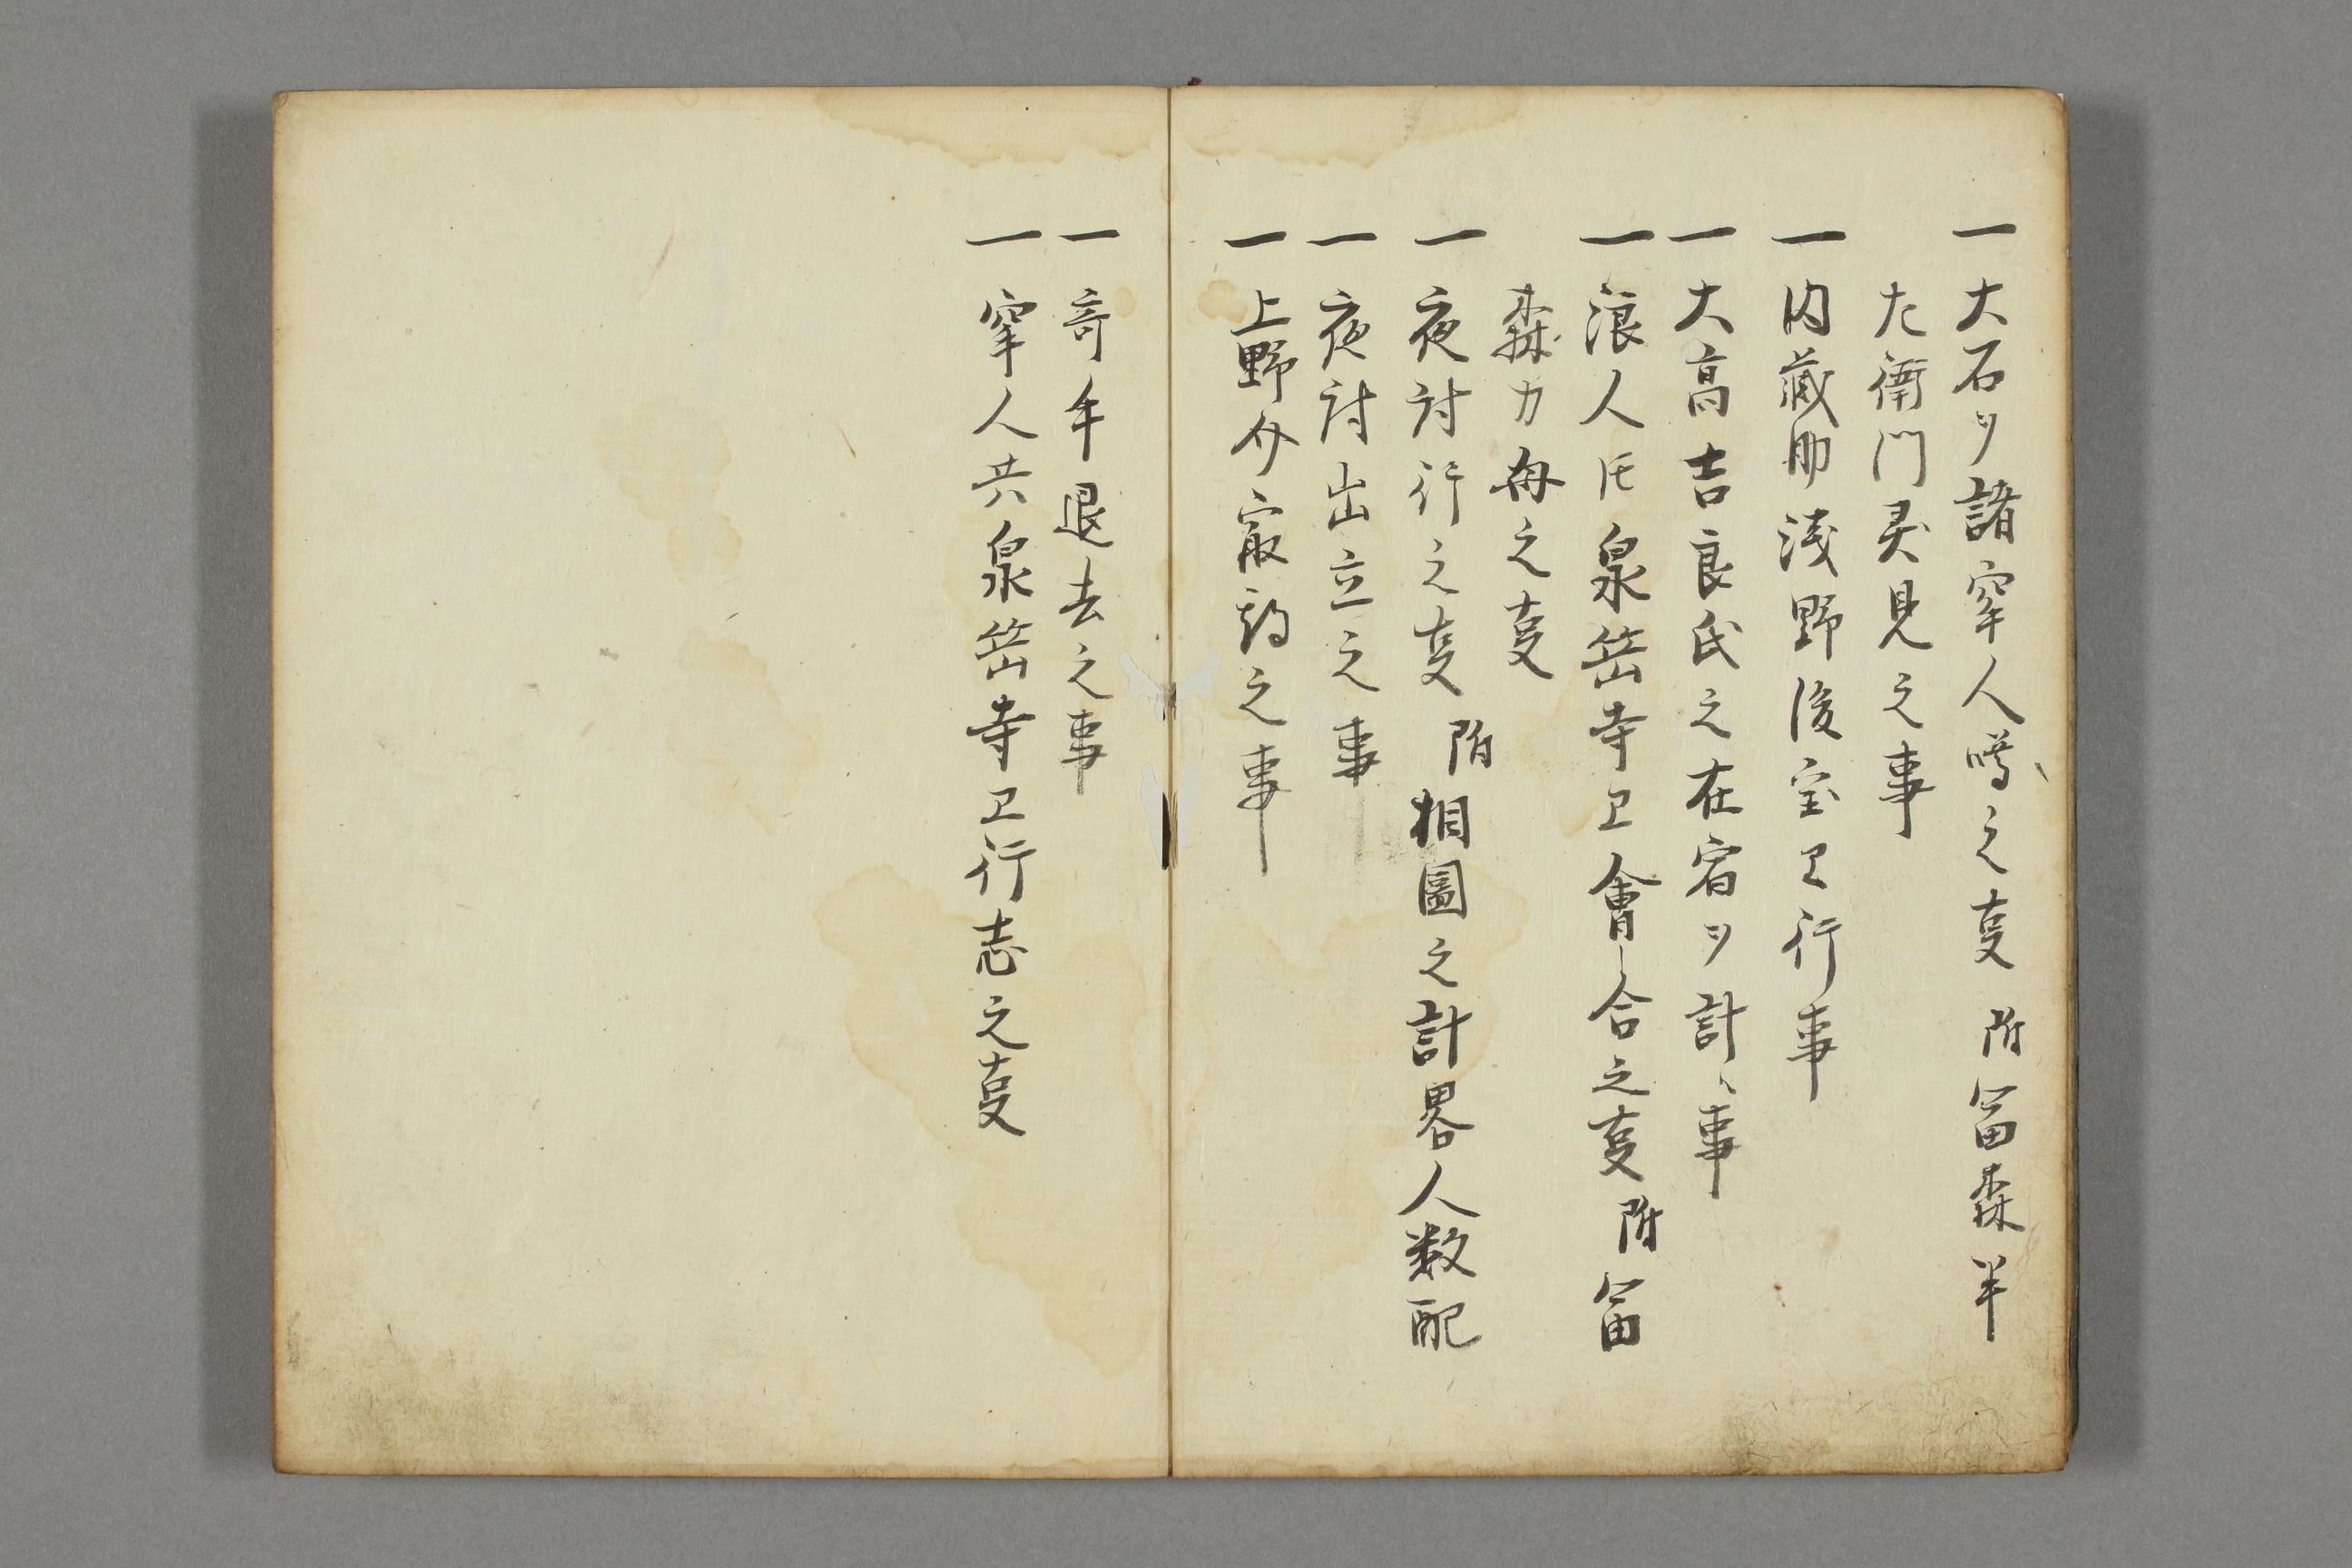 一大石ヲ諸窂人噂之㕝附冨森半
左衛門異見之事
一内蔵助浅野後室卫行事
一大高吉良氏之在宿ヲ計ル事
一浪人𪜈泉岳寺卫會合之㕝附冨
森カ母之㕝
一夜討行之㕝附相圖之計畧人数配
一夜討出立之事
一上野介最期之事
一寄手退去之事
一窂人共泉岳寺卫行志之㕝